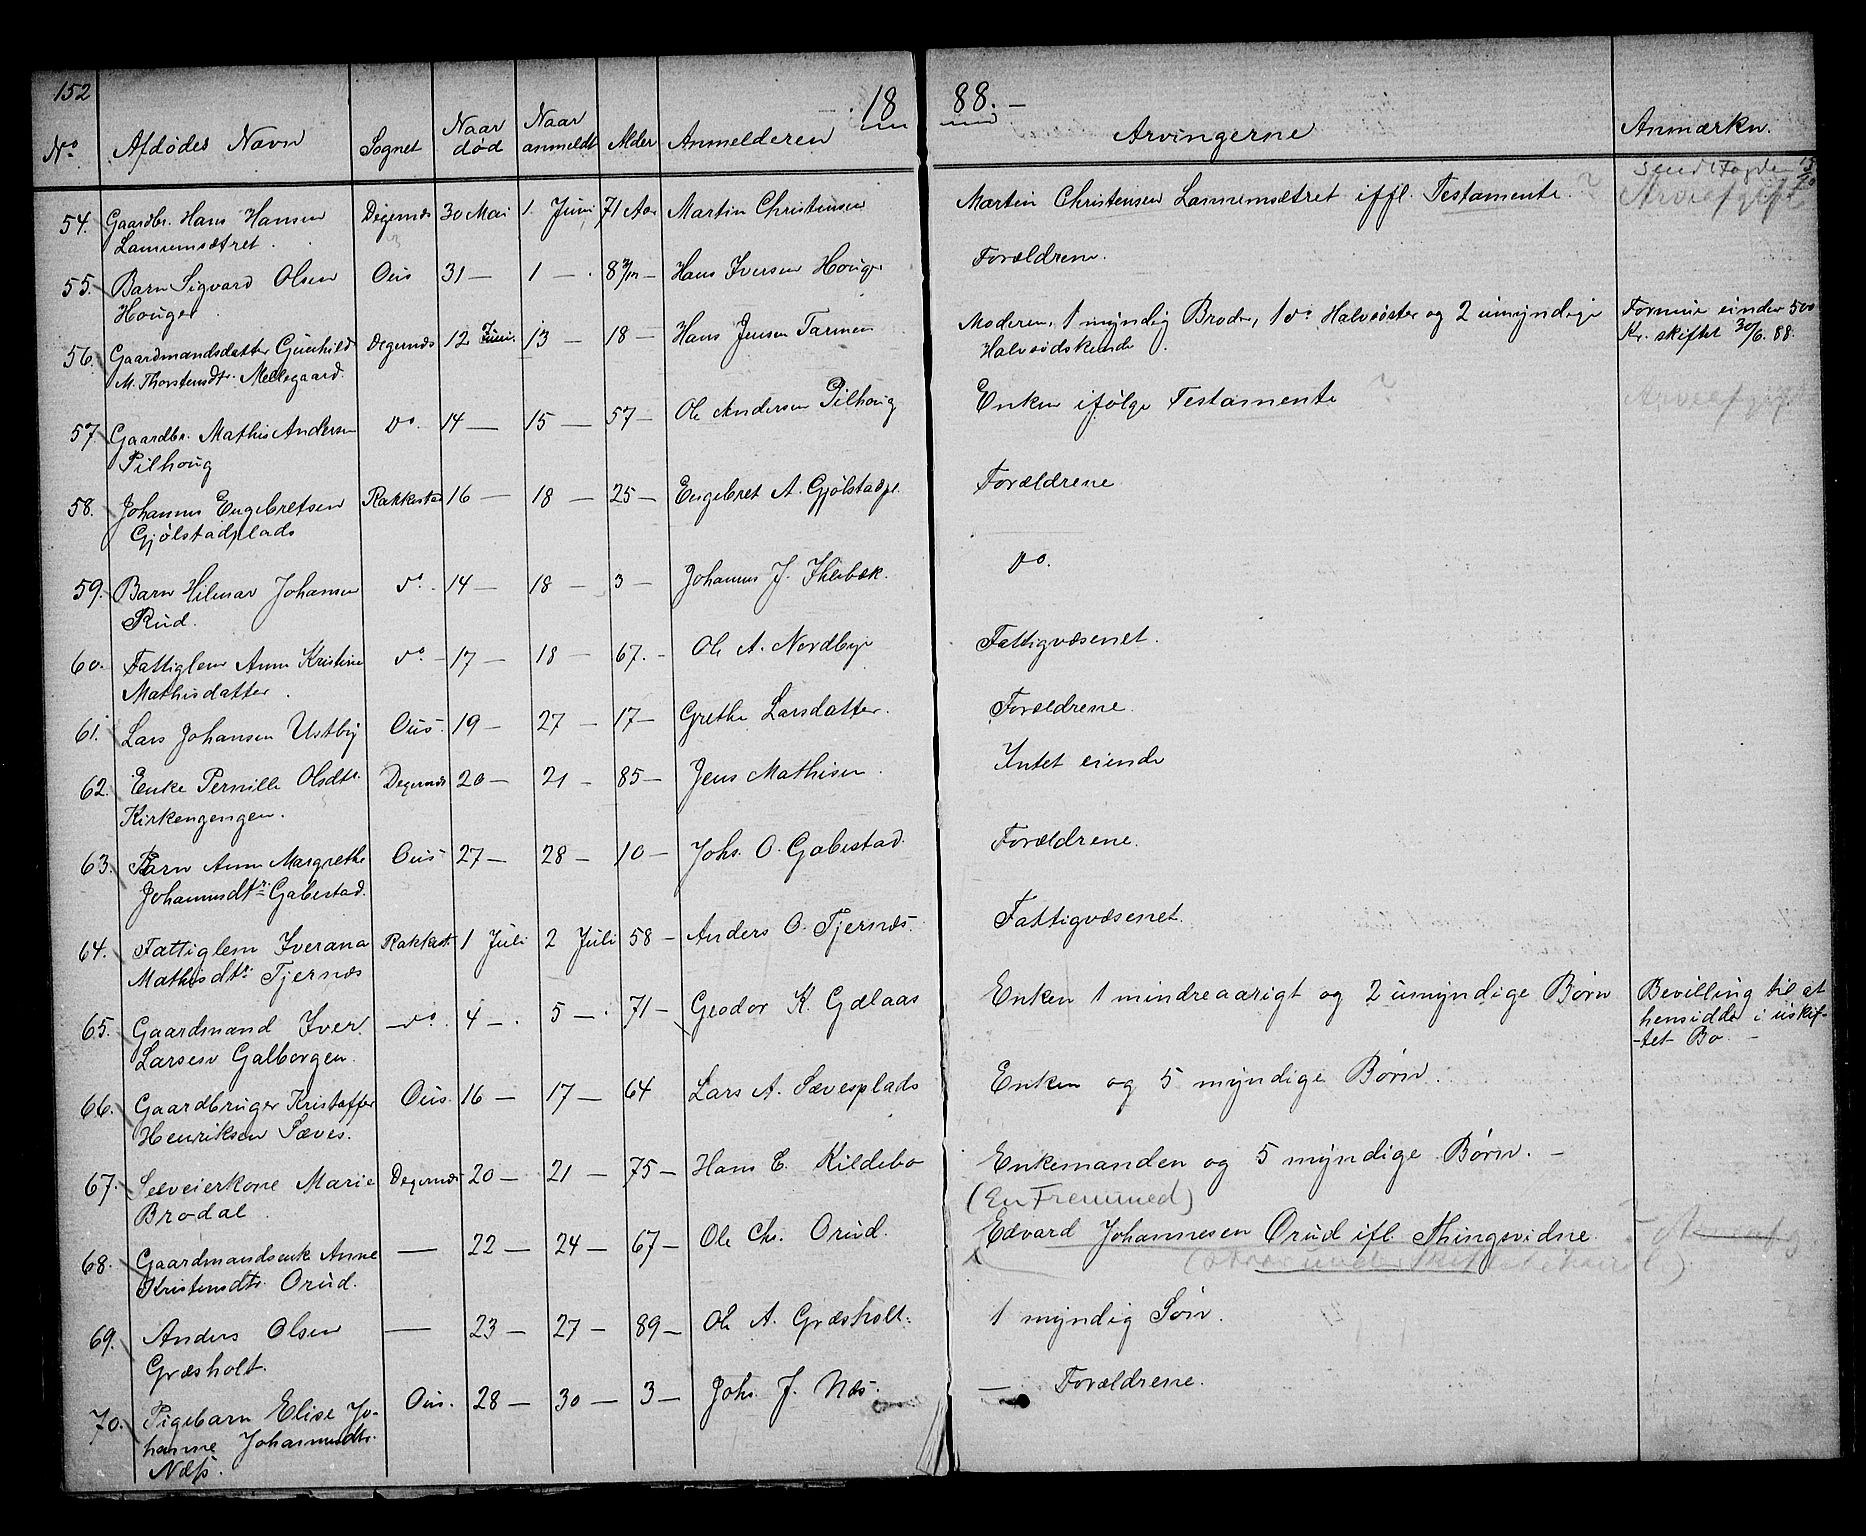 152
18 88. –
No. Afdødes Navn Sognet Naar død Naar anmeldt Alder Anmelderen Arvingerne Anmærkn.
Sendt Fogden
54. Gaardbr. Hans Hansen Degernæs 30 Mai 1. Juni 71 Aar Martin Christensen Martin Christensen Lannemsætret iffl. Testamente. ? Arveafgift
Lannemsætret.
55. Barn Sigvard Olsen Ous 31 — 1 — 8 — Hans Iversen Houger Forældrene.
Houger
56. Gaardmandsdatter Gunhild Degernæs 12 Juni. 13 — 18 — Hans Jensen Tarmen Moderen, 1 myndig Broder, 1 do Halvsøster og 2 umyndige Formue under 500
M. Thorstensdtr. Melleegaard. Halvsødskende. Kr. skiftet 30/6. 88.
57. Gaardbr. Mathis Andersen do. 14 — 15 — 57 — Ole Andersen Pilhoug Enken ifølge Testamente ? Arveafgift
Pilhoug
58. Johannes Engebretsen Rakkestad 16 — 18 — 25 — Engebret A. Gjølstadpl. Forældrene
Gjølstadplads
59. Barn Hilmar Johansen do. 14 — 18 — 3 — Johannes J. Ihlebæk. do.
Rud.
60. Fattiglem Anne Kristine do — 17 — 18 — 67. — Ole A. Nordbye Fattigvæsenet.
Mathisdatter.
61. Lars Johansen Ustby Ous. 19 — 27 — 17 — Grethe Larsdatter. Forældrene.
62. Enke Pernille Olsdtr. Degernæs 20 — 21 — 85 — Jens Mathisen. Intet eiende
Kirkengengen.
63. Barn Anne Margrethe Ous 27 — 28 — 10 — Johs. O. Gabestad. Forældrene.
Johannesdtr. Gabestad.
64. Fattiglem Iverana Rakkest. 1 Juli 2 Juli 58 — Anders O. Tjernæs. Fattigvæsenet.
Mathisdtr. Tjernæs
65. Gaardmand Iver do. 4 — 5 — 71 — Geodor K. Gælaas Enken 1 mindreaarigt og 2 umyndige Børn Bevilling til at
Larsesv Galborgen. hensidde i uskif-
-tet Bo. —
66. Gaardbruger Kristoffer Ous. 16 — 17 — 64 Lars A. Sævesplads Enken og 5 myndige Børn.
Henriksen Sæves.
67. Selveierkone Marie Degernæs 20 — 21 — 75 — Hans E. Kildebo Enkemanden og 5 myndige Børn. —
Brodal.
(En Fremmed)
68. Gaardmandsenke Anne — 22 — 24 — 67 — Ole Chr. Orud. Edvard Johannesen Orud ifl. Thingsvidne.
Kristensdtr. Orud. under Skiftebehandl.)
69. Anders Olsen — 23 — 27 — 89 — Ole A. Græsholt. 1 myndig Søn.
Græsholt.
70. Pigebarn Elise Jo- Ous. 28 — 30 — 3 — Johs. J. Næs. — Forældrene.
hanne Johannesdtr.
Næss.